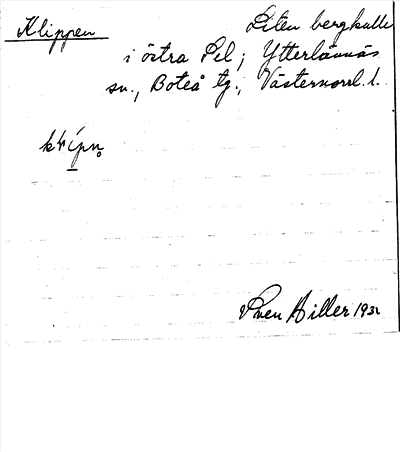 Klippen Liten bergkulle
i östra Pel; Ytterlännäs
sn., Boteå tg., Västernorrl. l.
Sven Hiller 1931